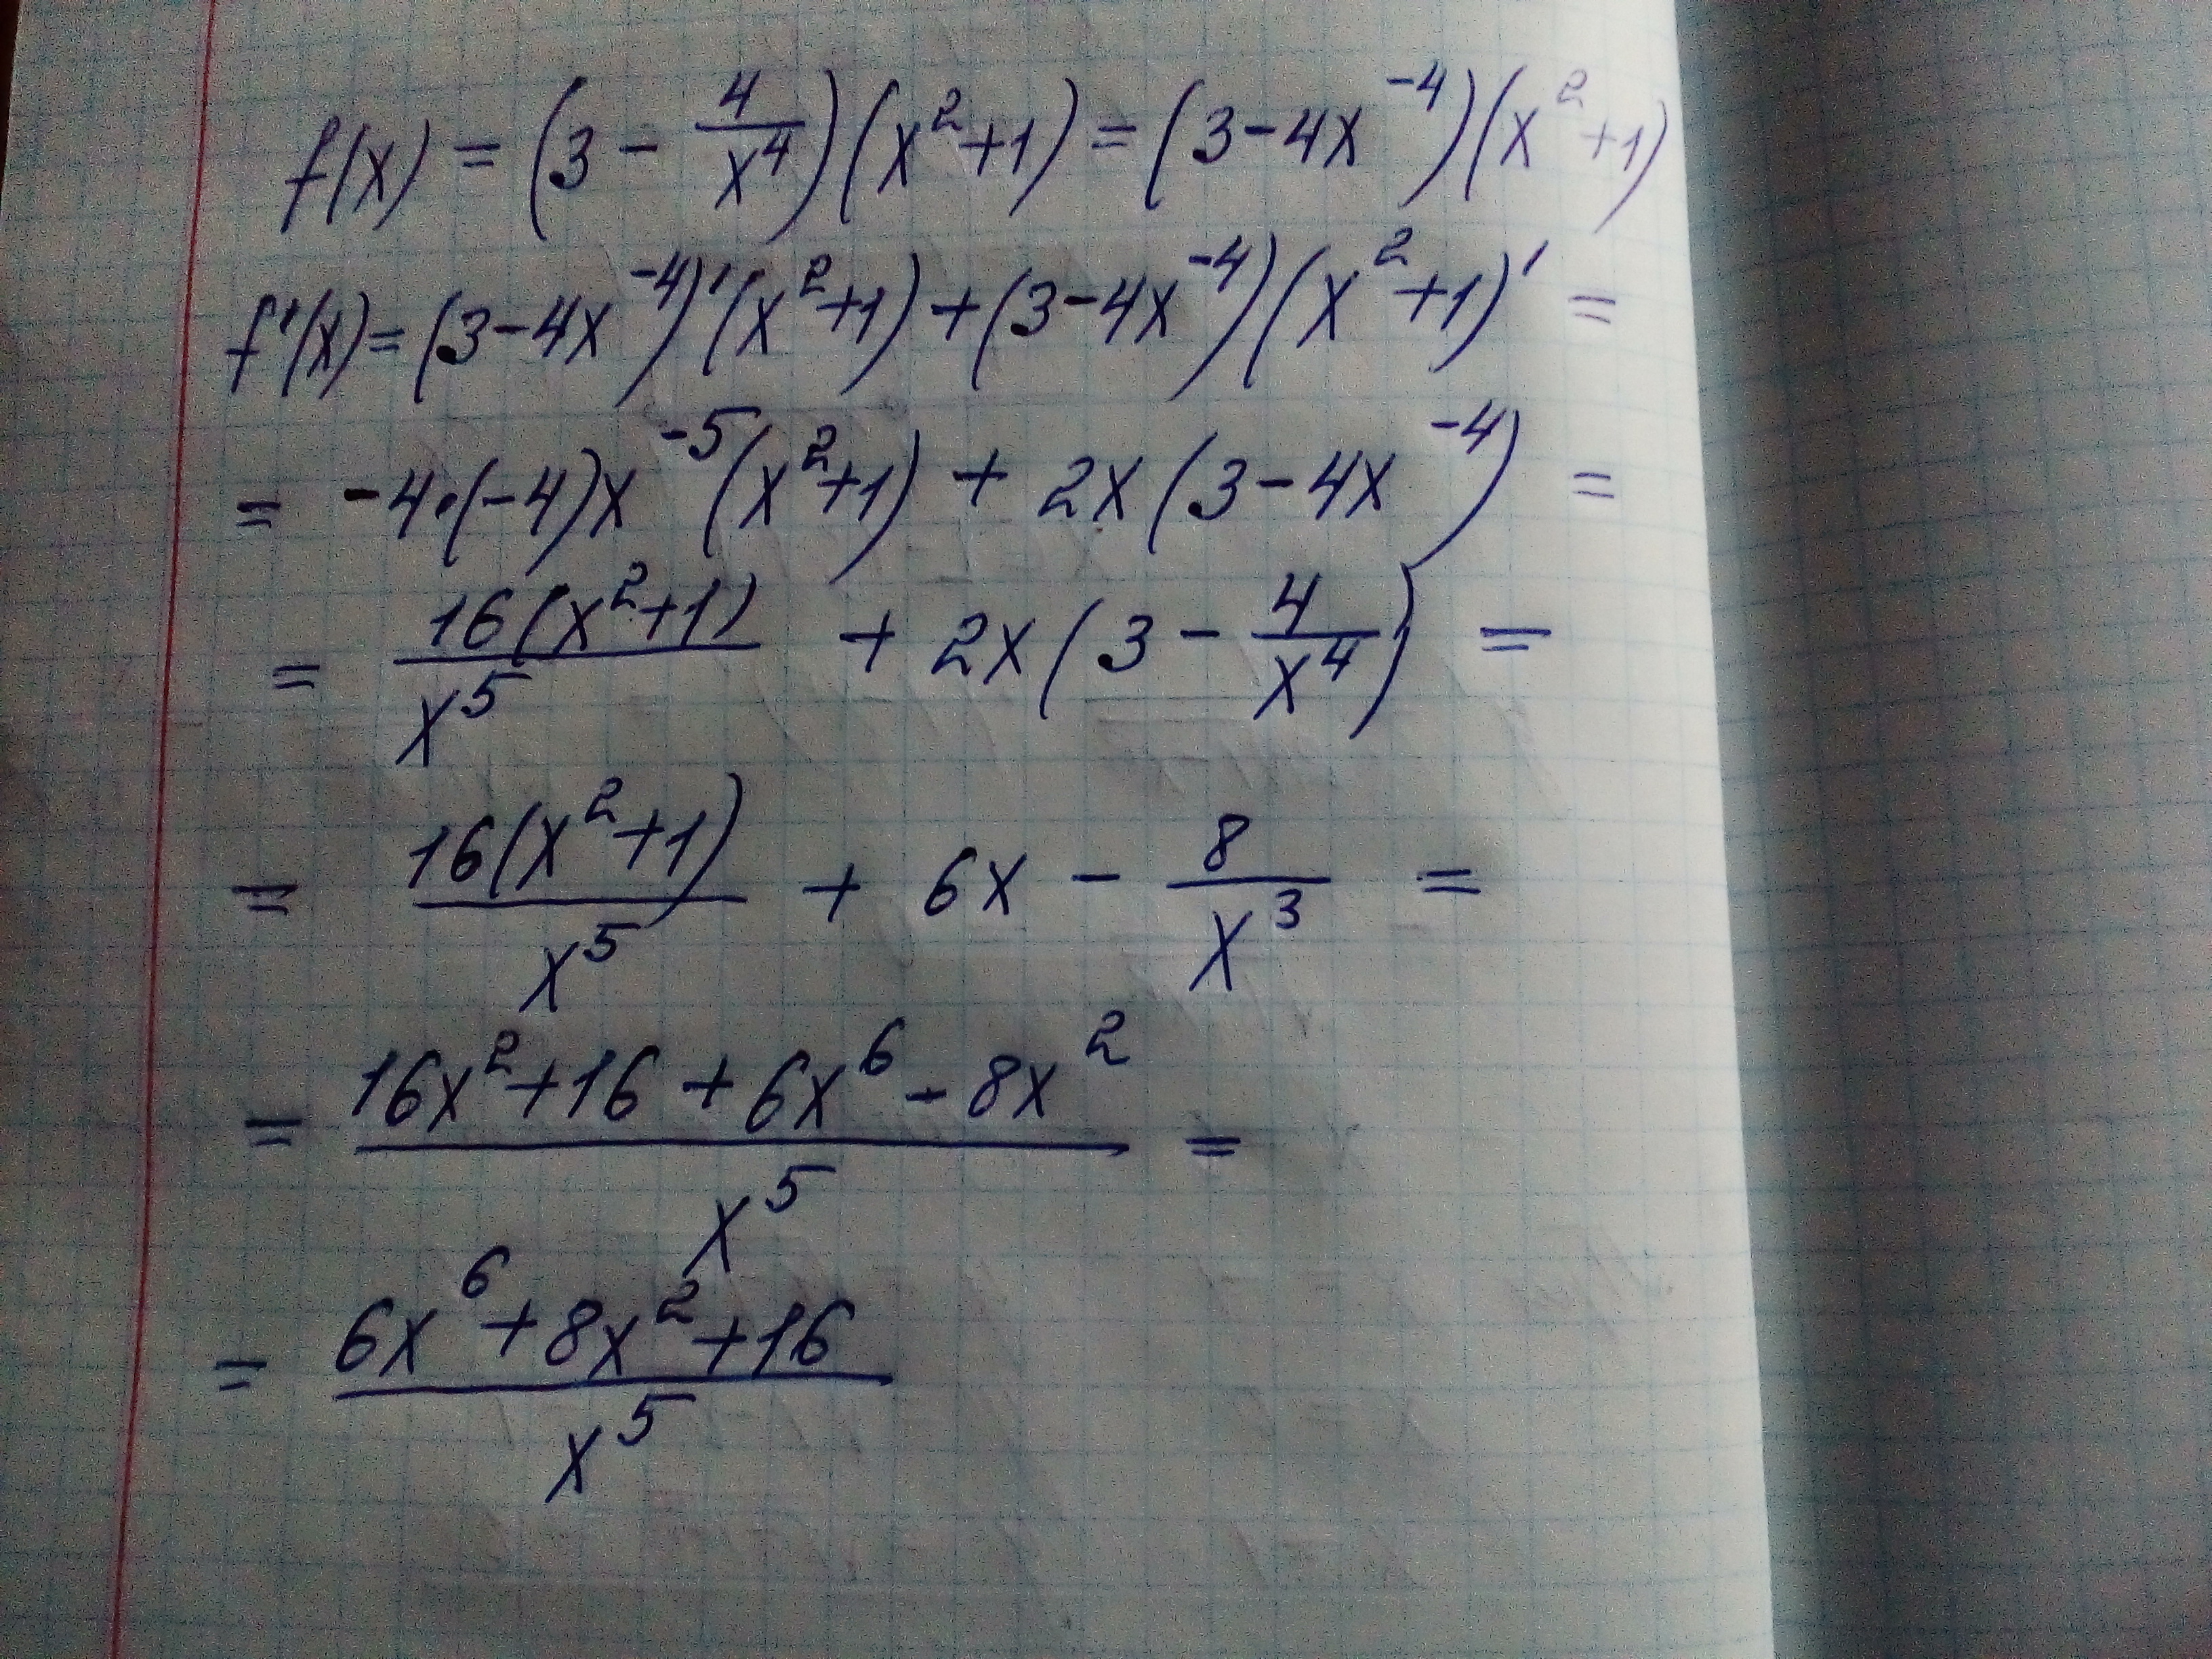 f(x) = (3 - 4/x⁴)(x²+1) = (3-4x⁻⁴)(x²+1)
f'(x) = (3-4x⁻⁴)'(x²+1) + (3-4x⁻⁴)(x²+1)' =
= -4·(-4)x⁻⁵(x²+1) + 2x(3-4x⁻⁴) =
= 16(x²+1)/x⁵ + 2x(3 - 4/x⁴) =
= 16(x²+1)/x⁵ + 6x - 8/x³ =
= (16x²+16+6x⁶-8x²)/x⁵ =
= (6x⁶+8x²+16)/x⁵